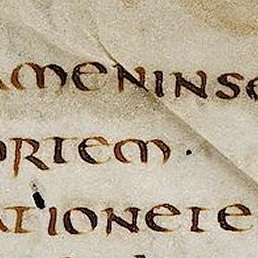 AMENINSE
ORTEM ·
ATIONETE